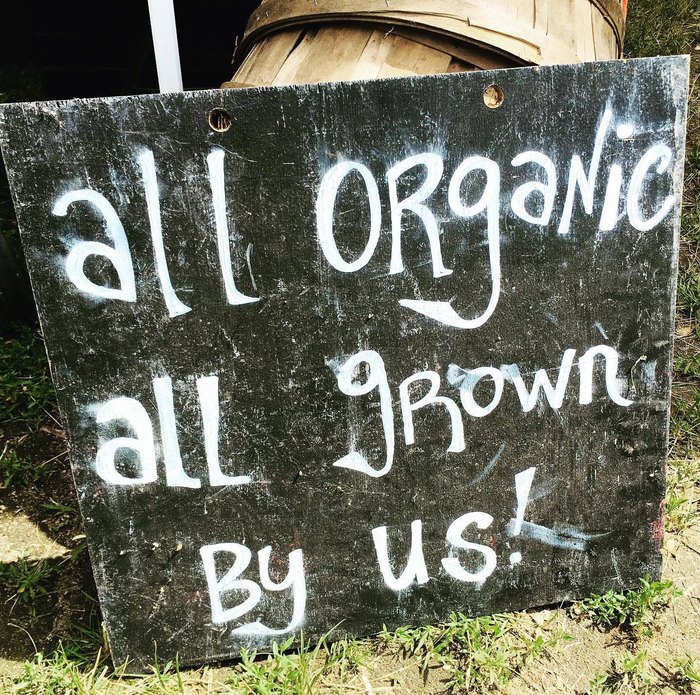 all ORganic
all gRown
By us!